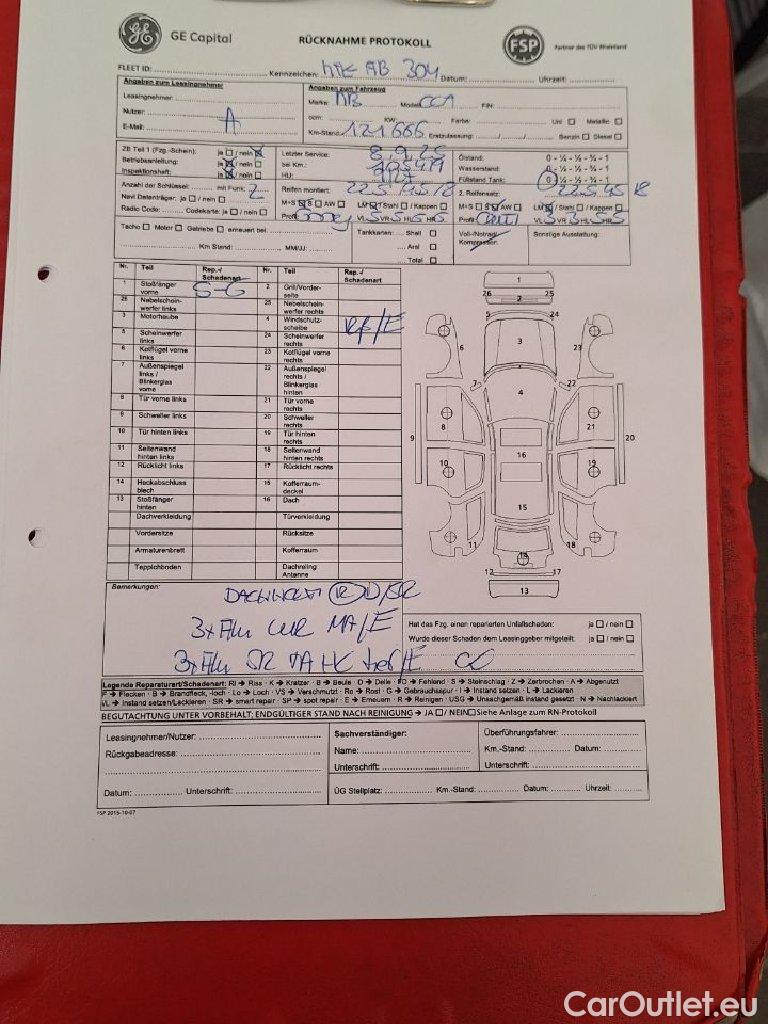 GE Capital
RÜCKNAHME PROTOKOLL
FSP
Partner des TÜV Rheinland
FLEET ID: Kennzeichen: AB 304 Datum: Uhrzeit:
Angaben zum Leasingnehmer
Leasingnehmer:
Nutzer: A
E-Mail:
Angaben zum Fahrzeug
Marke: Modell: FIN:
ccm: KW: Farbe: Uni □ Metallic □
Km-Stand: 121666 Erstzulassung: / / Benzin □ Diesel □
ZB Teil 1 (Fzg.-Schein): ja □ / nein □
Betriebsanleitung: ja □ / nein □
Inspektionsheft: ja □ / nein □
Anzahl der Schlüssel: mit Funk: 2
Navi Datenträger: ja □ / nein □
Radio Code: Codekarte: ja □ / nein □
Letzter Service: 8.9.25
bei Km.:
HU:
Reifen montiert:
M+S □ S □ AW □ LM □ / Stahl □ / Kappen □
Profil: VL 5 VR 5 HL 5 HR 5
Ölstand: 0 - ¼ - ½ - ¾ - 1
Wasserstand: 0 - ¼ - ½ - ¾ - 1
Füllstand Tank: 0 - ¼ - ½ - ¾ - 1
2. Reifensatz: 225 45 18
M+S □ S □ AW □ LM □ / Stahl □ / Kappen □
Profil: VL 5 VR HL 5 HR 5
Tacho □ Motor □ Getriebe □ erneuert bei:
Km Stand: MM/JJ:
Tankkarten: Shell □
Aral □
Total □
Voll-/Notrad/
Kompressor:
Sonstige Ausstattung:
Nr. Teil Rep.-/ Schadenart Nr. Teil Rep.-/ Schadenart
1 Stoßfänger vorne S-G 2 Grill/Vorder-seite
26 Nebelschein-werfer links 25 Nebelschein-werfer rechts
3 Motorhaube 4 Windschutz-scheibe /E
5 Scheinwerfer links 24 Scheinwerfer rechts
6 Kotflügel vorne links 23 Kotflügel vorne rechts
7 Außenspiegel links / Blinkerglas vorne 22 Außenspiegel rechts / Blinkerglas hinten
8 Tür vorne links 21 Tür vorne rechts
9 Schweller links 20 Schweller rechts
10 Tür hinten links 19 Tür hinten rechts
11 Seitenwand hinten links 18 Seitenwand hinten rechts
12 Rücklicht links 17 Rücklicht rechts
14 Heckabschluss blech 15 Kofferraum-deckel
13 Stoßfänger hinten 16 Dach
Dachverkleidung Türverkleidung
Vordersitze Rücksitze
Armaturenbrett Kofferraum
Teppichboden Dachreling Antenne
1
26 25
2
5 24
6 3 23
7 22
4
8 21
9 20
16
10 19
15
11 18
14
12 17
13
Bemerkungen:
D/SR
3x /E
3x
Hat das Fzg. einen reparierten Unfallschaden: ja □ / nein □
Wurde dieser Schaden dem Leasinggeber mitgeteilt: ja □ / nein □
Legende Reparaturart/Schadenart: RI → Riss · K → Kratzer · B → Beule · D → Delle · FD → Fehlend · S → Steinschlag · Z → Zerbrochen · A → Abgenutzt
F → Flecken · B → Brandfleck, -loch · Lo → Loch · VS → Verschmutzt · Ro → Rost · G → Gebrauchsspur · I → Instand setzen · L → Lackieren
I/L → Instand setzen/Lackieren · SR → smart repair · SP → spot repair · E → Erneuern · R → Reinigen · USG → Unsachgemäß instand gesetzt · N → Nachlackiert
BEGUTACHTUNG UNTER VORBEHALT; ENDGÜLTIGER STAND NACH REINIGUNG → JA □/ NEIN □ Siehe Anlage zum RN-Protokoll
Leasingnehmer/Nutzer:
Rückgabeadresse:
Datum: Unterschrift:
Sachverständiger:
Name:
Unterschrift:
Überführungsfahrer:
Km.-Stand: Datum:
Unterschrift:
ÜG Stellplatz: Km.-Stand: Datum: Uhrzeit:
FSP 2015-10-07
CarOutlet.eu